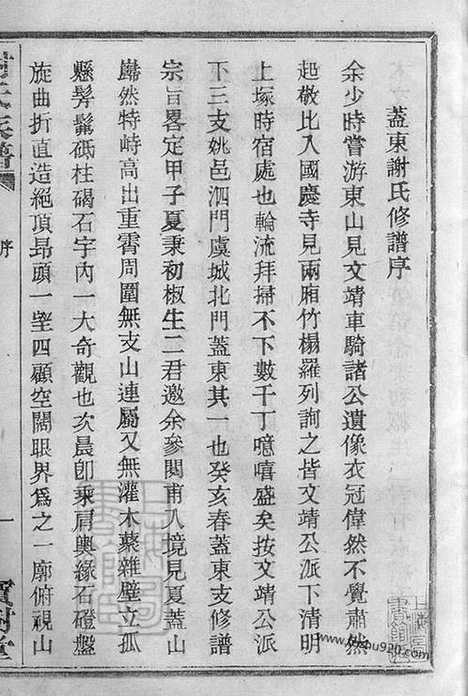 蓋東謝氏修譜序
余少時嘗游東山見文靖車騎諸公遺像衣冠偉然不覺肅然
起敬比入國慶寺見兩廂竹榻羅列詢之皆文靖公派下清明
上塚時宿處也輪流拜掃不下數千丁噫嘻盛矣按文靖公派
下三支姚邑泗門虞城北門蓋東其一也癸亥春蓋東支修譜
宗旨畧定甲子夏秉初椒生二君邀余參閱甫入境見夏蓋山
巋然特峙高出重霄周圍無支山連屬又無灌木蒙雜壁立孤
懸髣髴砥柱碣石宇內一大奇觀也次晨卽乘肩輿緣石磴盤
旋曲折直造絕頂昂頭一望四顧空闊眼界爲之一廓俯視山
氏家譜
序
一
寶樹堂